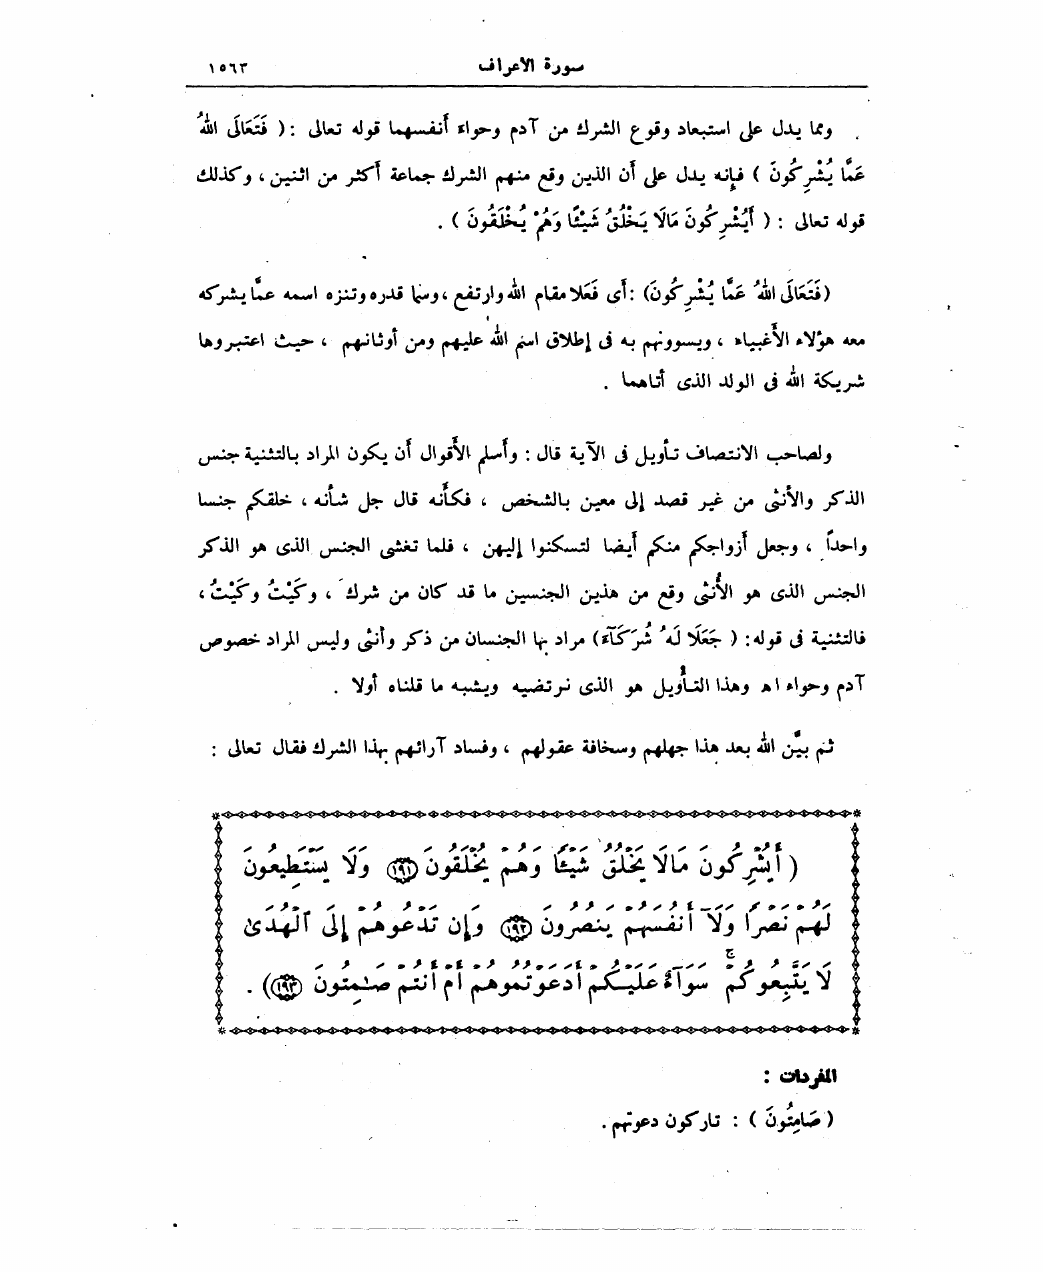 سورة الأعراف ١٥٦٣
ومما يدل على استبعاد وقوع الشرك من آدم وحواء أنفسهما قوله تعالى : ( فَتَعَالَى اللهُ
عَمَّا يُشْرِكُونَ ) فإنه يدل على أن الذين وقع منهم الشرك جماعة أكثر من اثنين ، وكذلك
قوله تعالى : ( أَيُشْرِكُونَ مَالَا يَخْلُقُ شَيْئًا وَهُمْ يُخْلَقُونَ ) .
(فَتَعَالَى اللهُ عَمَّا يُشْرِكُونَ) : أى فَعَلا مقام الله وارتفع ، وسما قدره وتنزه اسمه عمَّا يشركه
معه هؤلاء الأغبياء ، ويسوونهم به فى إطلاق اسم الله عليهم ومن أوثانهم ، حيث اعتبروها
شريكة الله فى الولد الذى أتاهما .
ولصاحب الانتصاف تأويل فى الآية قال : وأسلم الأقوال أن يكون المراد بالتثنية جنس
الذكر والأنثى من غير قصد إلى معين بالشخص ، فكأنه قال جل شأنه ، خلقكم جنسا
واحداً ، وجعل أزواجكم منكم أيضا لتسكنوا إليهن ، فلما تغشى الجنس الذى هو الذكر
الجنس الذى هو الأُنثى وقع من هذين الجنسين ما قد كان من شرك ، وكَيْتُ وكَيْتُ ،
فالتثنية فى قوله : ( جَعَلَا لَهُ شُرَكَآءَ ) مراد بها الجنسان من ذكر وأنثى وليس المراد خصوص
آدم وحواء اه وهذا التأويل هو الذى نرتضيه ويشبه ما قلناه أولا .
ثم بيَّن الله بعد هذا جهلهم وسخافة عقولهم ، وفساد آرائهم بهذا الشرك فقال تعالى :
( أَيُشْرِكُونَ مَالَا يَخْلُقُ شَيْئًا وَهُمْ يُخْلَقُونَ ۝١٩١ وَلَا يَسْتَطِيعُونَ
لَهُمْ نَصْرًا وَلَآ أَنفُسَهُمْ يَنصُرُونَ ۝١٩٢ وَإِن تَدْعُوهُمْ إِلَى ٱلْهُدَىٰ
لَا يَتَّبِعُوكُمْ ۚ سَوَآءٌ عَلَيْكُمْ أَدَعَوْتُمُوهُمْ أَمْ أَنتُمْ صَـٰمِتُونَ ۝١٩٣) .
المفردات :
( صَامِتُونَ ) : تاركون دعوتهم .